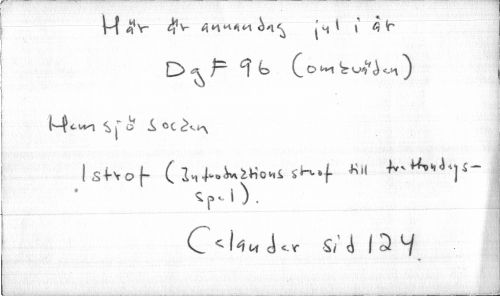 Här är annandag jul i år
DgF 96 (omkväden)
Hemsjö socken
1 strof (Introduktions strof till trettondags-
spel).
Celander sid 124.